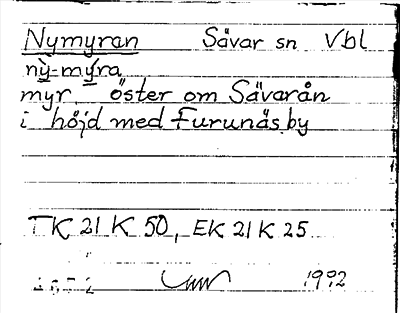 Nymyran Sävar sn Vbl
ny̆-my̆ra
myr öster om Sävarån
i höjd med Furunäs by
TK 21 K 50, EK 21 K 25
1972